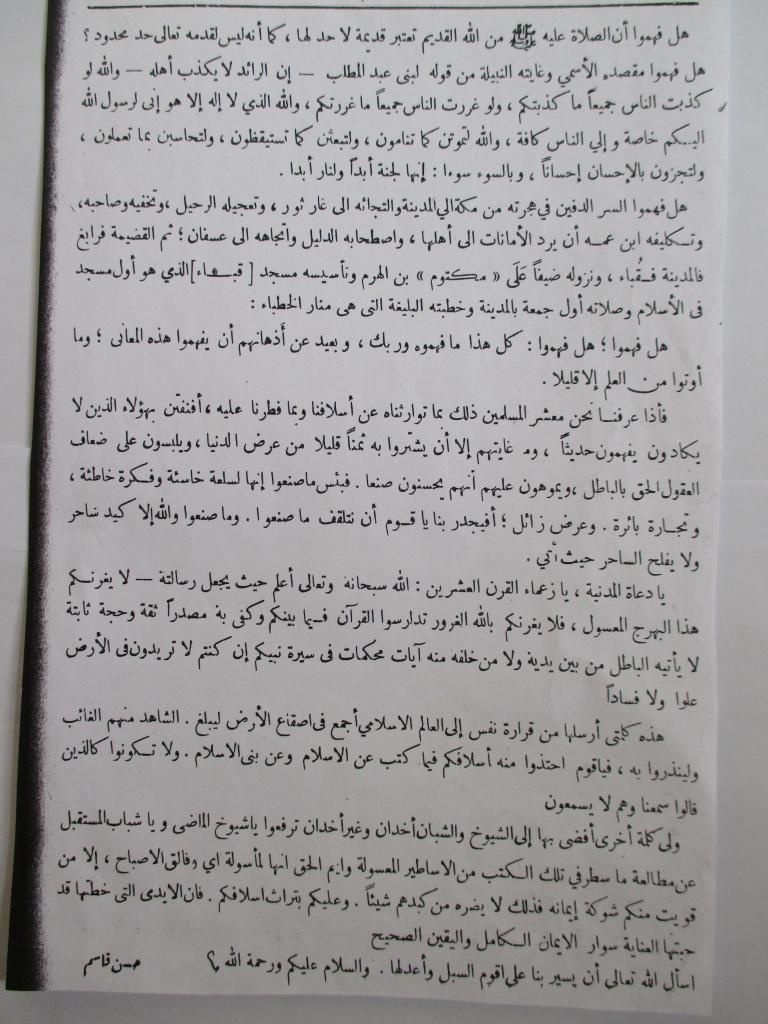 هل فهموا أن الصلاة عليه ﷺ من الله القديم تعتبر قديمة لا حد لها ، كما أنه ليس لقدمه تعالى حد محدود ؟
هل فهموا مقصده الأسمي وغايته النبيلة من قوله لبنى عبد المطلب — إن الرائد لا يكذب أهله — والله لو
كذبت الناس جميعاً ما كذبتكم ، ولو غررت الناس جميعاً ما غررتكم ، والله الذي لا إله إلا هو إنى لرسول الله
اليـكم خاصة وإلي الناس كافة ، والله لتموتن كما تنامون ، ولتبعثن كما تستيقظون ، ولتحاسبن بما تعملون ،
ولتجزون بالإحسان إحساناً ، وبالسوء سوءا : إنها لجنة أبداً ولنار أبدا .
هل فهموا السر الدفين في هجرته من مكة الي المدينة والتجائه الى غار ثور ، وتعجيله الرحيل ، وتخفيه وصاحبه،
وتـكليفه ابن عمـه أن يرد الأمانات الى أهلها ، واصطحابه الدليل واتجاهه الى عسفان ؛ ثم القضيمة فرابغ
فالمدينة فـقُباء ، ونزوله ضيفاً عَلَى « مـكتوم » بن الهرم وتأسيسه مسجد [ قبـاء ] الذي هو أول مسجد
فى الأسلام وصلاته أول جمعة بالمدينة وخطبته البليغة التى هى منار الخطباء :
هل فهموا ؛ هل فهموا : كل هذا ما فهموه وربك ، وبعيد عن أذهانهم أن يفهموا هذه المعانى ؛ وما
أوتوا من العلم إلا قليلا .
فأذا عرفنـا نحن معشر المسلمين ذلك بما توارثناه عن أسلافنا وبما فطرنا عليه ، أفنفتن بهؤلاء الذين لا
يـكادون يفهمون حديثاً ، وما غايتهم إلا أن يشتروا به ثمناً قليلا من عرض الدنيا ، ويلبسون على ضعاف
العقول الحق بالباطل ، ويموهون عليهم أنهم يحسنون صنعا . فبئس ماصنعوا إنها لسلعة خاسئة وفـكرة خاطئة ،
وتجـارة بائرة . وعرض زائل ؛ أفيجدر بنا يا قـوم أن نتلقف ما صنعوا . وما صنعوا والله إلا كيد ساحر
ولا يفلح الساحر حيث أتي .
يا دعاة المدنية ، يا زعماء القرن العشرين : الله سبحانه وتعالى أعلم حيث يجعل رسالتة — لا يغرنـكم
هذا البهرج المعسول ، فلا يغرنكم بالله الغرور تدارسوا القرآن فـيما بينكم وكفى به مصدراً ثقة وحجة ثابتة
لا يأتيه الباطل من بين يدية ولا من خلفه منه آيات محكمات فى سيرة نبيكم إن كنتم لا تريدون فى الأرض
علوا ولا فساداً
هذه كلمتى أرسلها من قرارة نفس إلى العالم الاسلامي أجمع فى اصقاع الأرض ليبلغ . الشاهد منهم الغائب
ولينذروا به ، فياقوم احتذوا منه أسلافكم فيما كتب عن الاسلام وعن بنى الاسلام . ولا تـكونوا كالذين
قالوا سمعنا وهم لا يسمعون
ولى كلمة أخرى أفضى بها إلى الشيوخ والشبان أخدان وغير أخدان ترفعوا ياشيوخ المااضى ويا شباب المستقبل
عن مطالعة ما سطر في تلك الـكتب من الاساطير المعسولة وايم الحق انها لمأسولة اي وفالق الاصباح ، إلا من
قويت منكم شوكة إيمانه فذلك لا يضره من كيدهم شيئاً . وعليكم بتراث اسلافكم . فان الايدى التى خطتها قد
حبتها العناية سوار الايمان الـكامل واليقين الصحيح
اسأل الله تعالى أن يسير بنا على اقوم السبل وأعدلها . والسلام عليكم ورحمة الله ؟ حسن قاسم